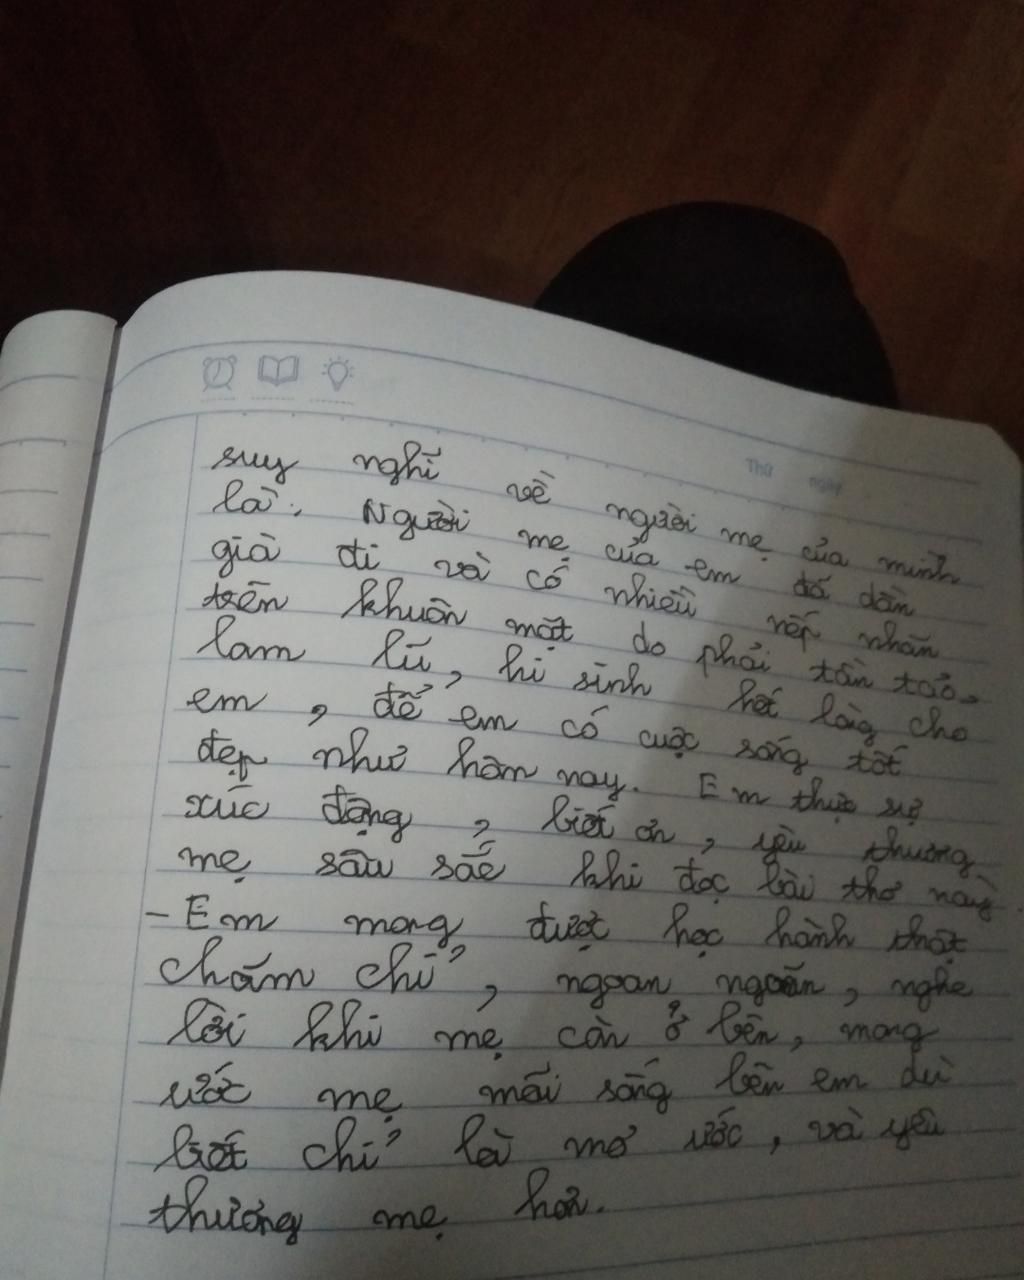 Thứ ngày
suy nghĩ về người mẹ của mình
là: Người mẹ của em đã dần
già đi và có nhiều nếp nhăn
trên khuôn mặt do phải tần tảo,
lam lũ, hi sinh hết lòng cho
em, để em có cuộc sống tốt
đẹp như hôm nay. Em thực sự
xúc động, biết ơn, yêu thương
mẹ sâu sắc khi đọc bài thơ này.
- Em mong được học hành thật
chăm chỉ, ngoan ngoãn, nghe
lời khi mẹ còn ở bên, mong
ước mẹ mãi sống bên em dù
biết chỉ là mơ ước, và yêu
thương mẹ hơn.